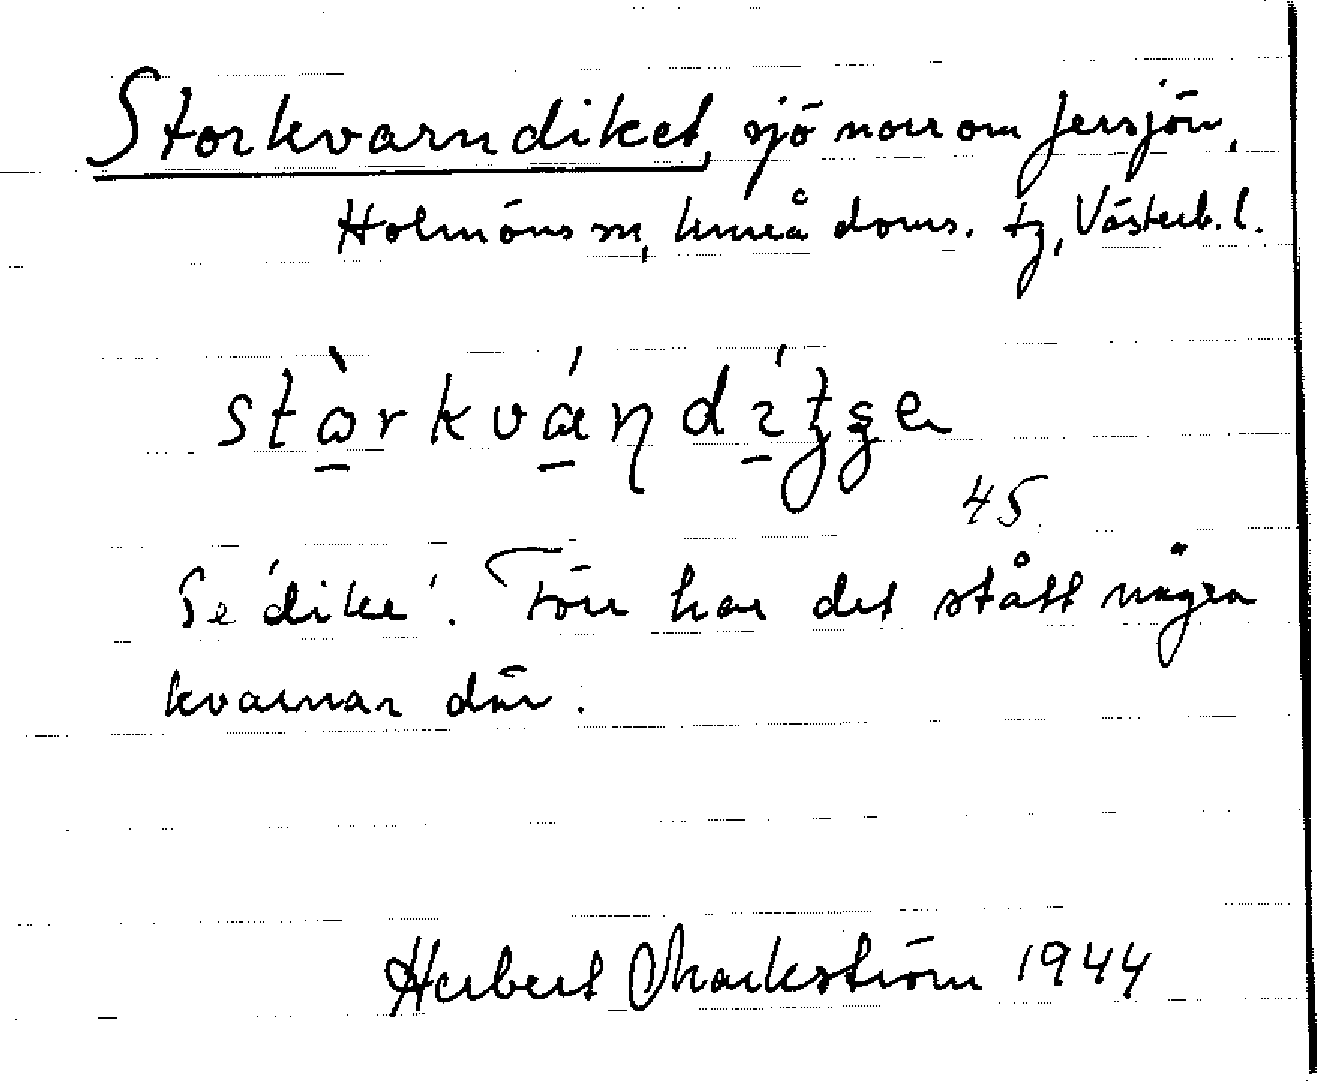 Storkvarndiket, sjö norr om Jersjön,
Holmöns sn, Umeå doms. tg, Västerb. l.
stàrkváṇdítse
45
Se 'dike'. Förr har det stått några
kvarnar där.
Herbert Markström 1944